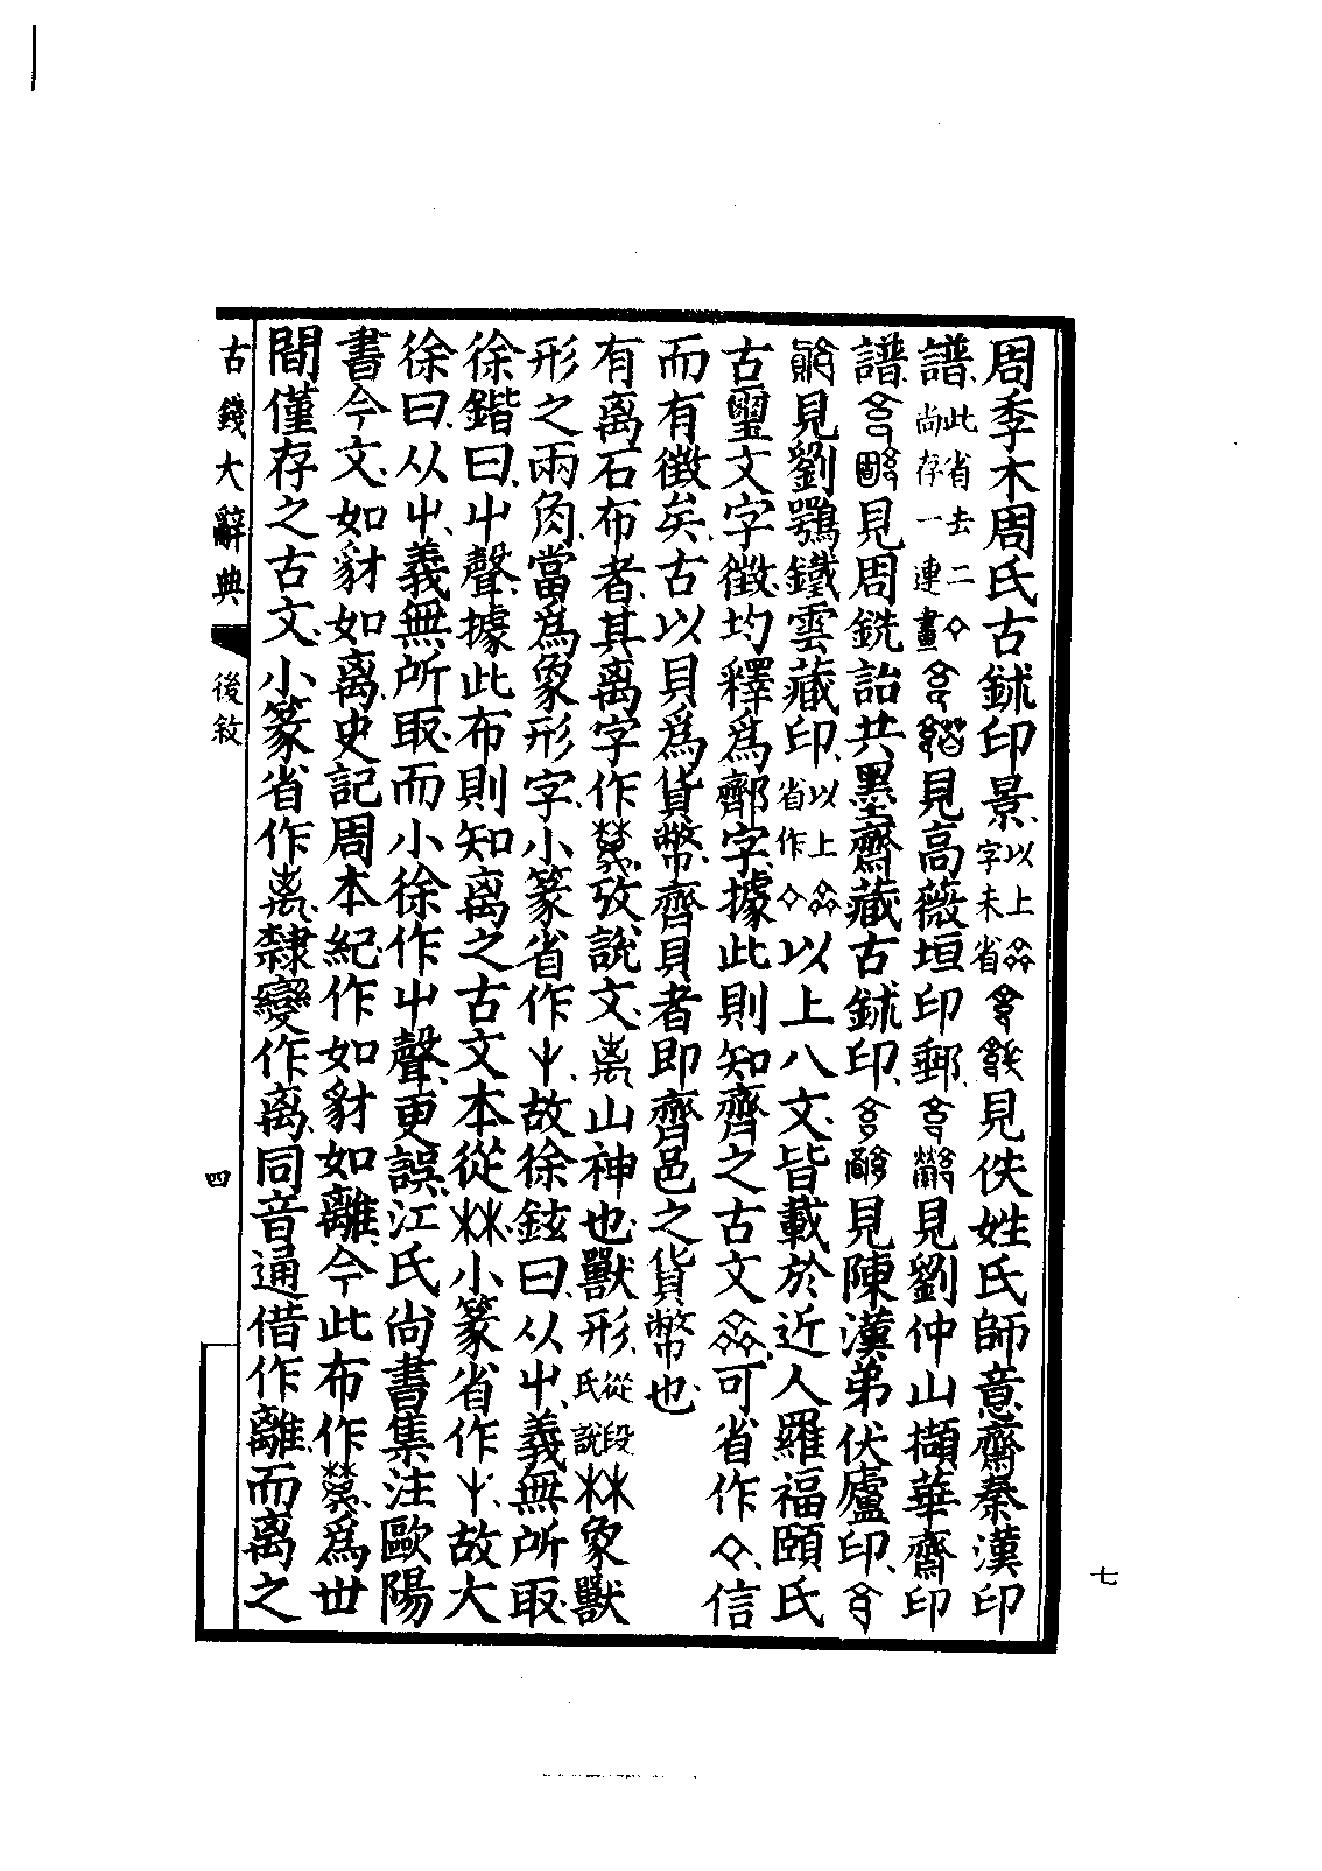 周季木周氏古鉥印景、以上字未省見佚姓氏師意齋秦漢印
譜、此省去二尚存一連畫見高薇垣印郵、見劉仲山擷華齋印
譜、見周銑詒共墨齋藏古鉥印、見陳漢弟伏廬印、
見劉鶚鐵雲藏印、以上省作以上八文、皆載於近人羅福頤氏
古璽文字徵、均釋爲鄭字、據此則知齊之古文可省作、信
而有徵矣、古以貝爲貨幣、齊貝者即齊邑之貨幣也、
有离石布者、其离字作、攷說文、山神也、獸形、從段氏說象獸
形之兩角、當爲象形字、小篆省作、故徐鉉曰、从屮、義無所取、
徐鍇曰、屮聲、據此布則知离之古文本從、小篆省作、故大
徐曰、从屮、義無所取、而小徐作屮聲、更誤、江氏尚書集注歐陽
書今文、如豺如离、史記周本紀、作如豺如離、今此布作、爲世
間僅存之古文、小篆省作、隸變作离、同音通借作離、而离之
古錢大辭典 後敘 四
七